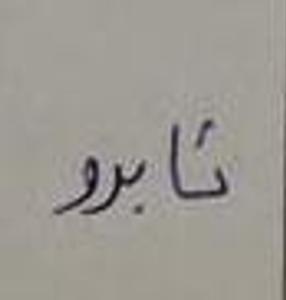 ثابرو